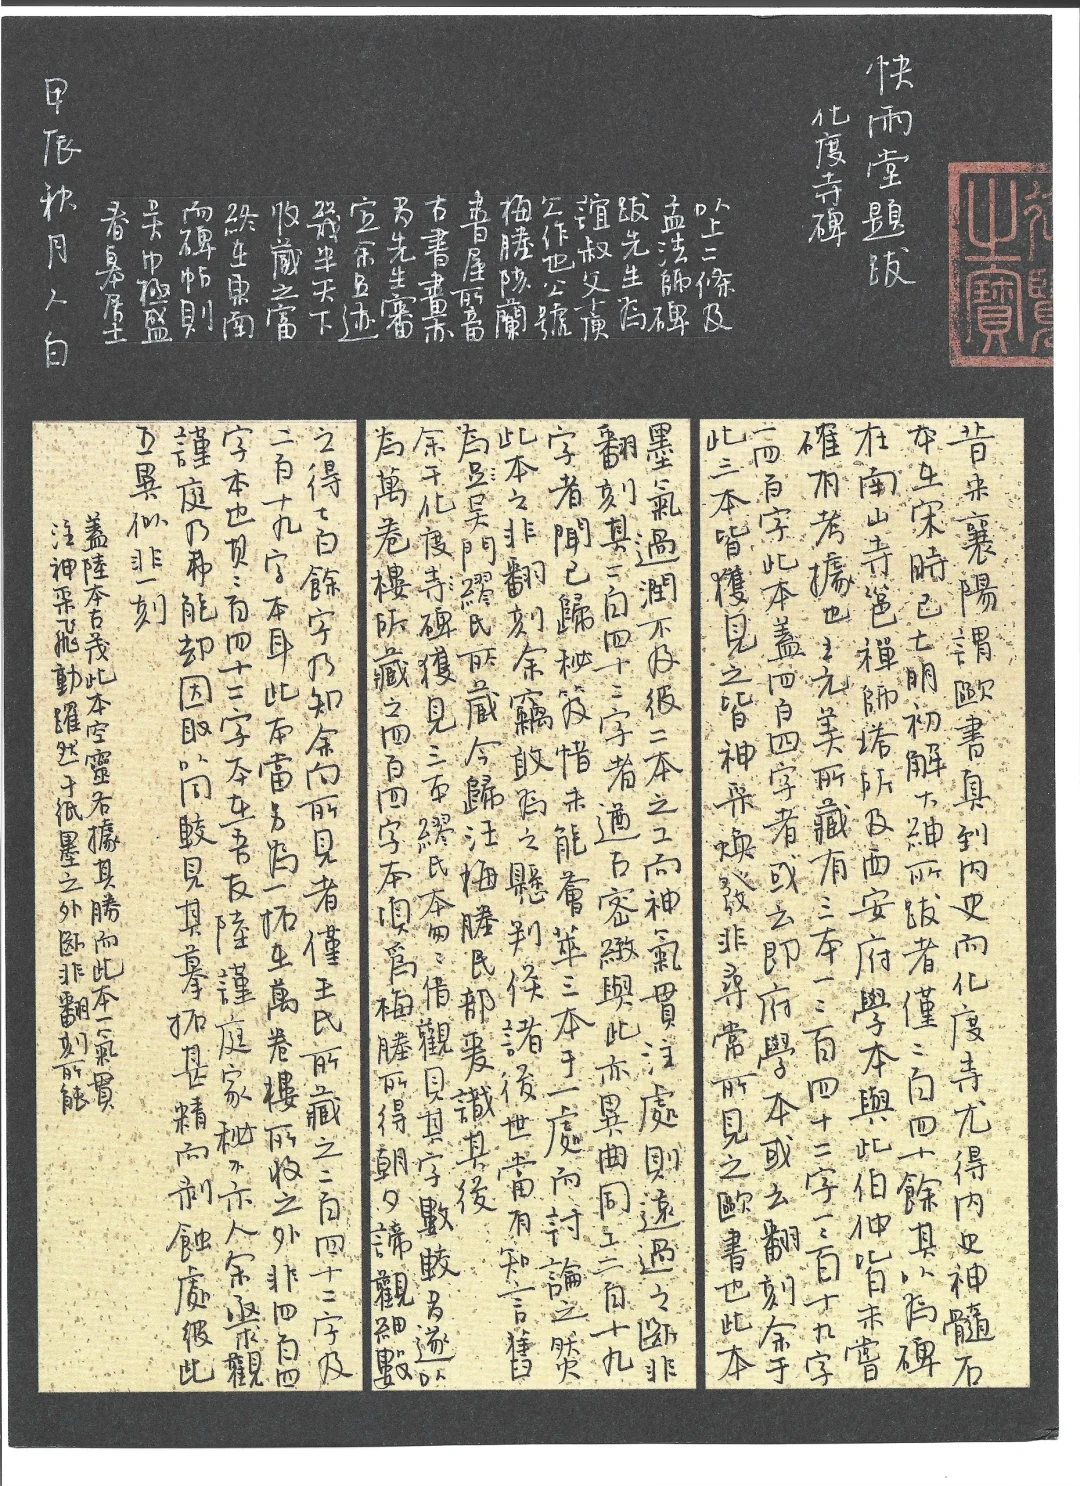 快雨堂題跋
化度寺碑
以上二條及
孟法師碑
跋先生為
誼叔父廣
公作也公號
梅塍陔蘭
書屋所畜
古書畫亦
為先生審
定余足迹
幾半天下
收藏之富
終在東南
而碑帖則
吳中極盛
春暴居士
甲辰秋月人白
之寶
昔米襄陽謂歐書真到內史而化度寺尤得內史神髓石
本在宋時已亡明初解大紳所跋者僅二百四十餘其以為碑
在南山寺邕禪師塔所及西安府學本與此伯仲皆未嘗
確有考據也王元美所藏有三本一二百四十二字一二百十九字
一四百字此本蓋四百四字者或云即府學本或云翻刻余于
此三本皆獲見之皆神采煥發非尋常所見之歐書也此本
墨氣過潤不及彼二本之工而神氣貫注處則遠過之斷非
翻刻其二百四十二字者遒古密緻與此亦異曲同工二百十九
字者聞已歸秘笈惜未能薈萃三本于一處而討論之然
此本之非翻刻余竊敢為之懸判俟諸後世當有知言舊
為吳門繆氏所藏今歸汪梅塍民部爰識其後
余于化度寺碑獲見三本繆氏本匆匆借觀其字數較多遂以
為萬卷樓所藏之四百四字本頃為梅塍所得朝夕諦觀細數
之得七百餘字乃知余向所見者僅王氏所藏之二百四十二字及
二百十九字本耳此本當另為一拓在萬卷樓所收之外非四百四
字本也其二百四十二字本在吾友陸謹庭家秘不示人余亟索觀
謹庭乃弗能却因取以同較見其摹拓甚精而剥蝕處彼此
互異似非一刻
蓋陸本古茂此本空靈各據其勝而此本一氣貫
注神采飛動躍然于紙墨之外斷非翻刻所能